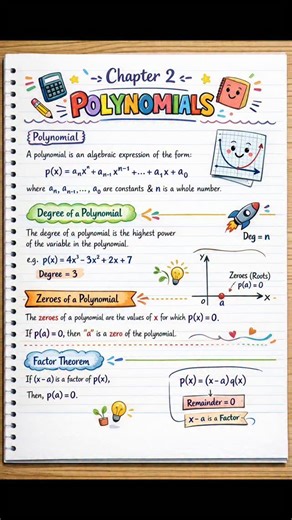 Chapter 2
POLYNOMIALS
Polynomial
A polynomial is an algebraic expression of the form:
p(x) = aₙxⁿ + aₙ₋₁xⁿ⁻¹ + ... + a₁x + a₀
where aₙ, aₙ₋₁, ..., a₀ are constants & n is a whole number.
Degree of a Polynomial
The degree of a polynomial is the highest power
of the variable in the polynomial.
Deg = n
e.g. p(x) = 4x³ - 3x² + 2x + 7
Degree = 3
Y
Zeroes (Roots)
p(a) = 0
O
a
X
Zeroes of a Polynomial
The zeroes of a polynomial are the values of x for which p(x) = 0.
If p(a) = 0, then "a" is a zero of the polynomial.
Factor Theorem
If (x-a) is a factor of p(x),
Then, p(a) = 0.
p(x) = (x-a) q(x)
Remainder = 0
x-a is a Factor